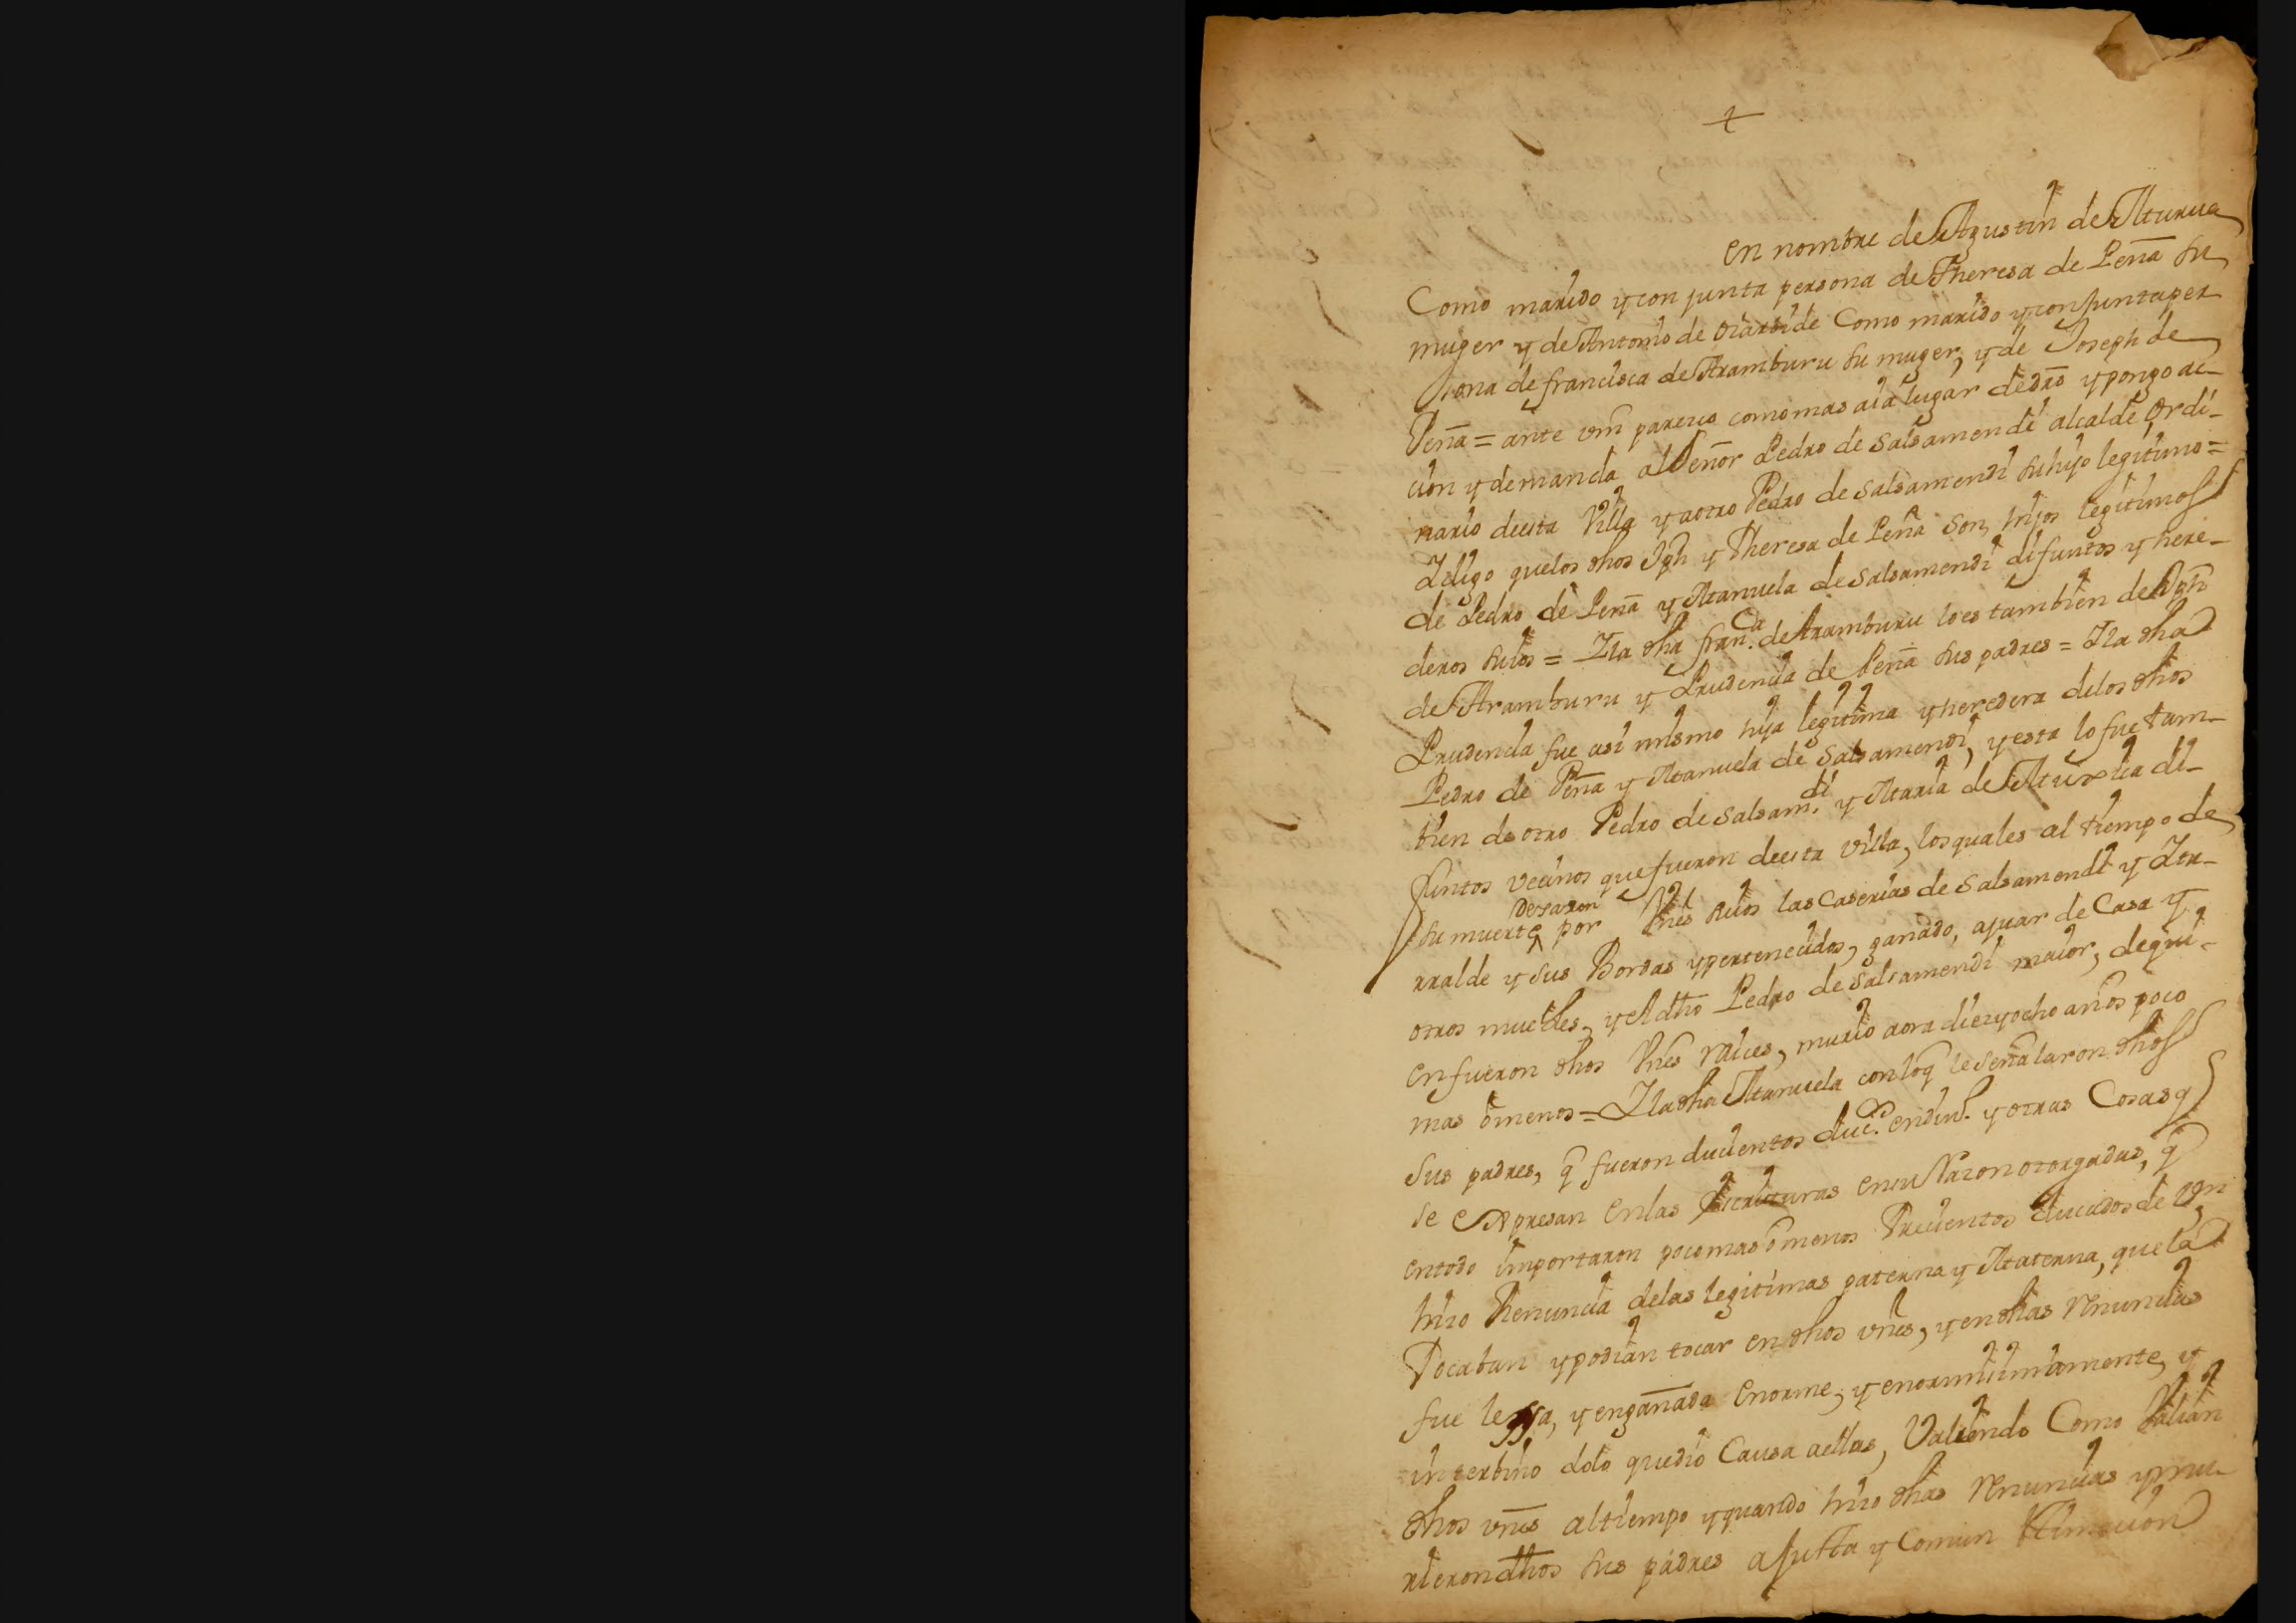 +
en nombre de Agustin de Iturrua
Como marido y con junta persona de Theresa de Peña su
muger y de Antonio de oiarbide Como marido y conjunta per
sona de francisca de Aramburu su muger, y de Joseph de
Peña = ante vm parezco como mas aia lugar de dro y pongo ac-
cion y demanda al Señor Pedro de Salsamendi alcalde Ordi-
nario de esta Villa y a otro Pedro de Salsamendi su hijo legitimo =
I digo que los dhos Jph y Theresa de Peña son hijos legitimos
de Pedro de Peña y Manuela de Salsamendi difuntos y here-
deros suios = I la dha fran.ca de Aramburu lo es tambien de Jph
de Aramburu y Prudencia de Peña sus padres = I la dha
Prudencia fue asi mismo hija legitima y heredera de los dhos
Pedro de Peña y Manuela de Salsamendi, y esta lo fue tam-
bien de otro Pedro de Salsam.di y Maria de di-
funtos vecinos que fueron de esta villa, los quales al tiempo de
su muerte dexaron por vnes suios las Caserias de Salsamendi y Itu-
rralde y sus Bordas y pertenecidos, ganado, ajuar de Casa y
otros muebles, y el dho Pedro de Salsamendi maior, de qui-
en fueron dhos vnes raices, murio aora diez y ocho años poco
mas o menos = I la dha Manuela con lo q le señalaron dhos
sus padres, q fueron ducientos duc.s en din.o y otras Cosas q
se expresan en las escrituras en su razon otorgadas, q
en todo importaron poco mas o menos trecientos ducados de vn
hizo Renuncia de las legitimas paterna y Materna, que la
Tocaban y podian tocar en dhos vnes, y en dhas renuncias
fue lessa, y engañada enorme, y enormissimamente, y
interbino dolo que dio Causa a ellas, Valiendo Como Valian
dhos vnes al tiempo y quando hizo dhas renuncias y mu-
rieron dhos sus padres a justa y Comun estimacion